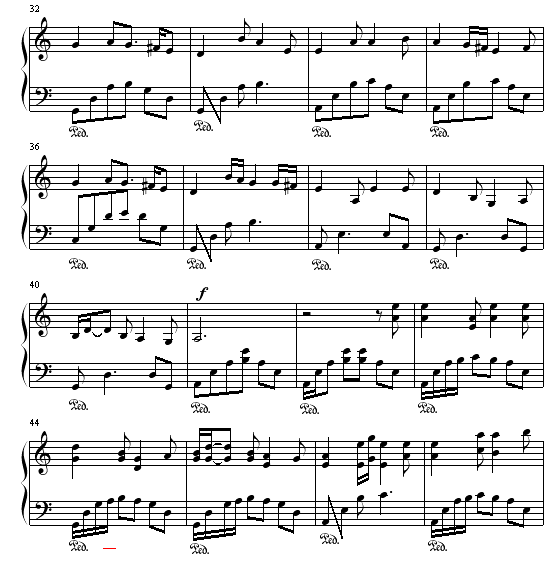 32
Ped. Ped. Ped. Ped.
36
Ped. Ped. Ped. Ped.
40
f
Ped. Ped. Ped. Ped.
44
Ped. Ped. Ped. Ped.